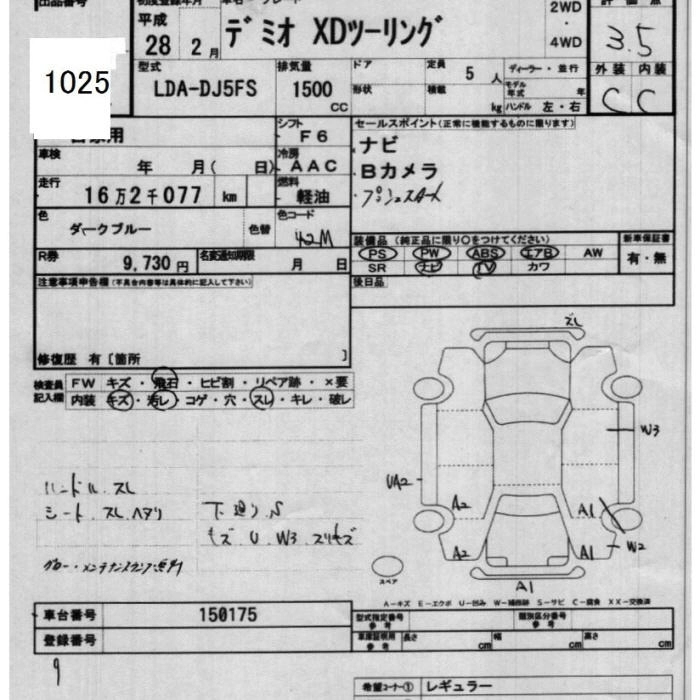 出品番号 初度登録年月 車名・グレード 2WD 評価点
平成 デミオ XDツーリング ・ 3.5
28 2月 4WD
1025 型式 排気量 ドア 定員 5 人 ディーラー・並行 外装 内装
LDA-DJ5FS 1500 CC 形状 積載 kg モデル年式 年 C C
ハンドル 左・右
自家用 シフト F6 セールスポイント(正常に機能するものに限ります)
車検 年 月( 日) 冷房 AAC ナビ
走行 16万2千077 km 燃料 軽油 Bカメラ
プッシュスタート
色 ダークブルー 色替 色コード 42M
装備品 (純正品に限り○をつけてください) 新車保証書
R券 9,730円 名変通知期限 月 日 PS PW ABS エアB AW 有・無
SR ナビ TV カワ
注意事項申告欄(不具合内容等は具体的に記入して下さい) 後日品
修復歴 有〔箇所 〕
スレ
検査員 FW キズ・飛石・ヒビ割・リペア跡・×要
記入欄 内装 キズ・汚レ・コゲ・穴・スレ・キレ・破レ
W3
ハンドル スレ UA2
シート スレ ヘタリ 下廻り S A2 A1
キズ U W3 スリキズ W2
グロー・メンテナンスランプ点灯 A2 A1
スペア A1
A-キズ E-エクボ U-凹み W-補修跡 S-サビ C-腐食 XX-交換済
車台番号 150175 型式指定番号 参考 類別区分番号 参考
登録番号 車庫証明用 参考 長さ cm 幅 cm 高さ cm
9
希望コーナー① レギュラー